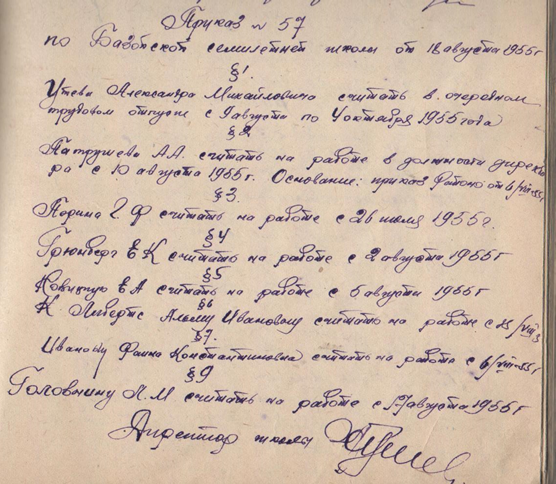 Приказ № 57
по Базойской семилетней школы от 18 августа 1955г
§1.
Утева Александра Михайловича считать в очередном
трудовом отпуске с 9 августа по 4 октября 1955 года
§2
Патрушева А.А. считать на работе в должности директо
ра с 10 августа 1955г. Основание: приказ Районо от 6/VIII-55г
§3.
Порина Г Ф считать на работе с 26 июля 1955г.
§4
Грюнберг Е К считать на работе с 2 августа 1955г
§5
Е А считать на работе с 5 августа 1955г
§6
К Либертс Альму Ивановну считать на работе с
§7.
Иванову Фаина Константиновна считать на работе с 6/VIII-55г
§9
Головнину А.М считать на работе с 17 августа 1955г
Директор школы